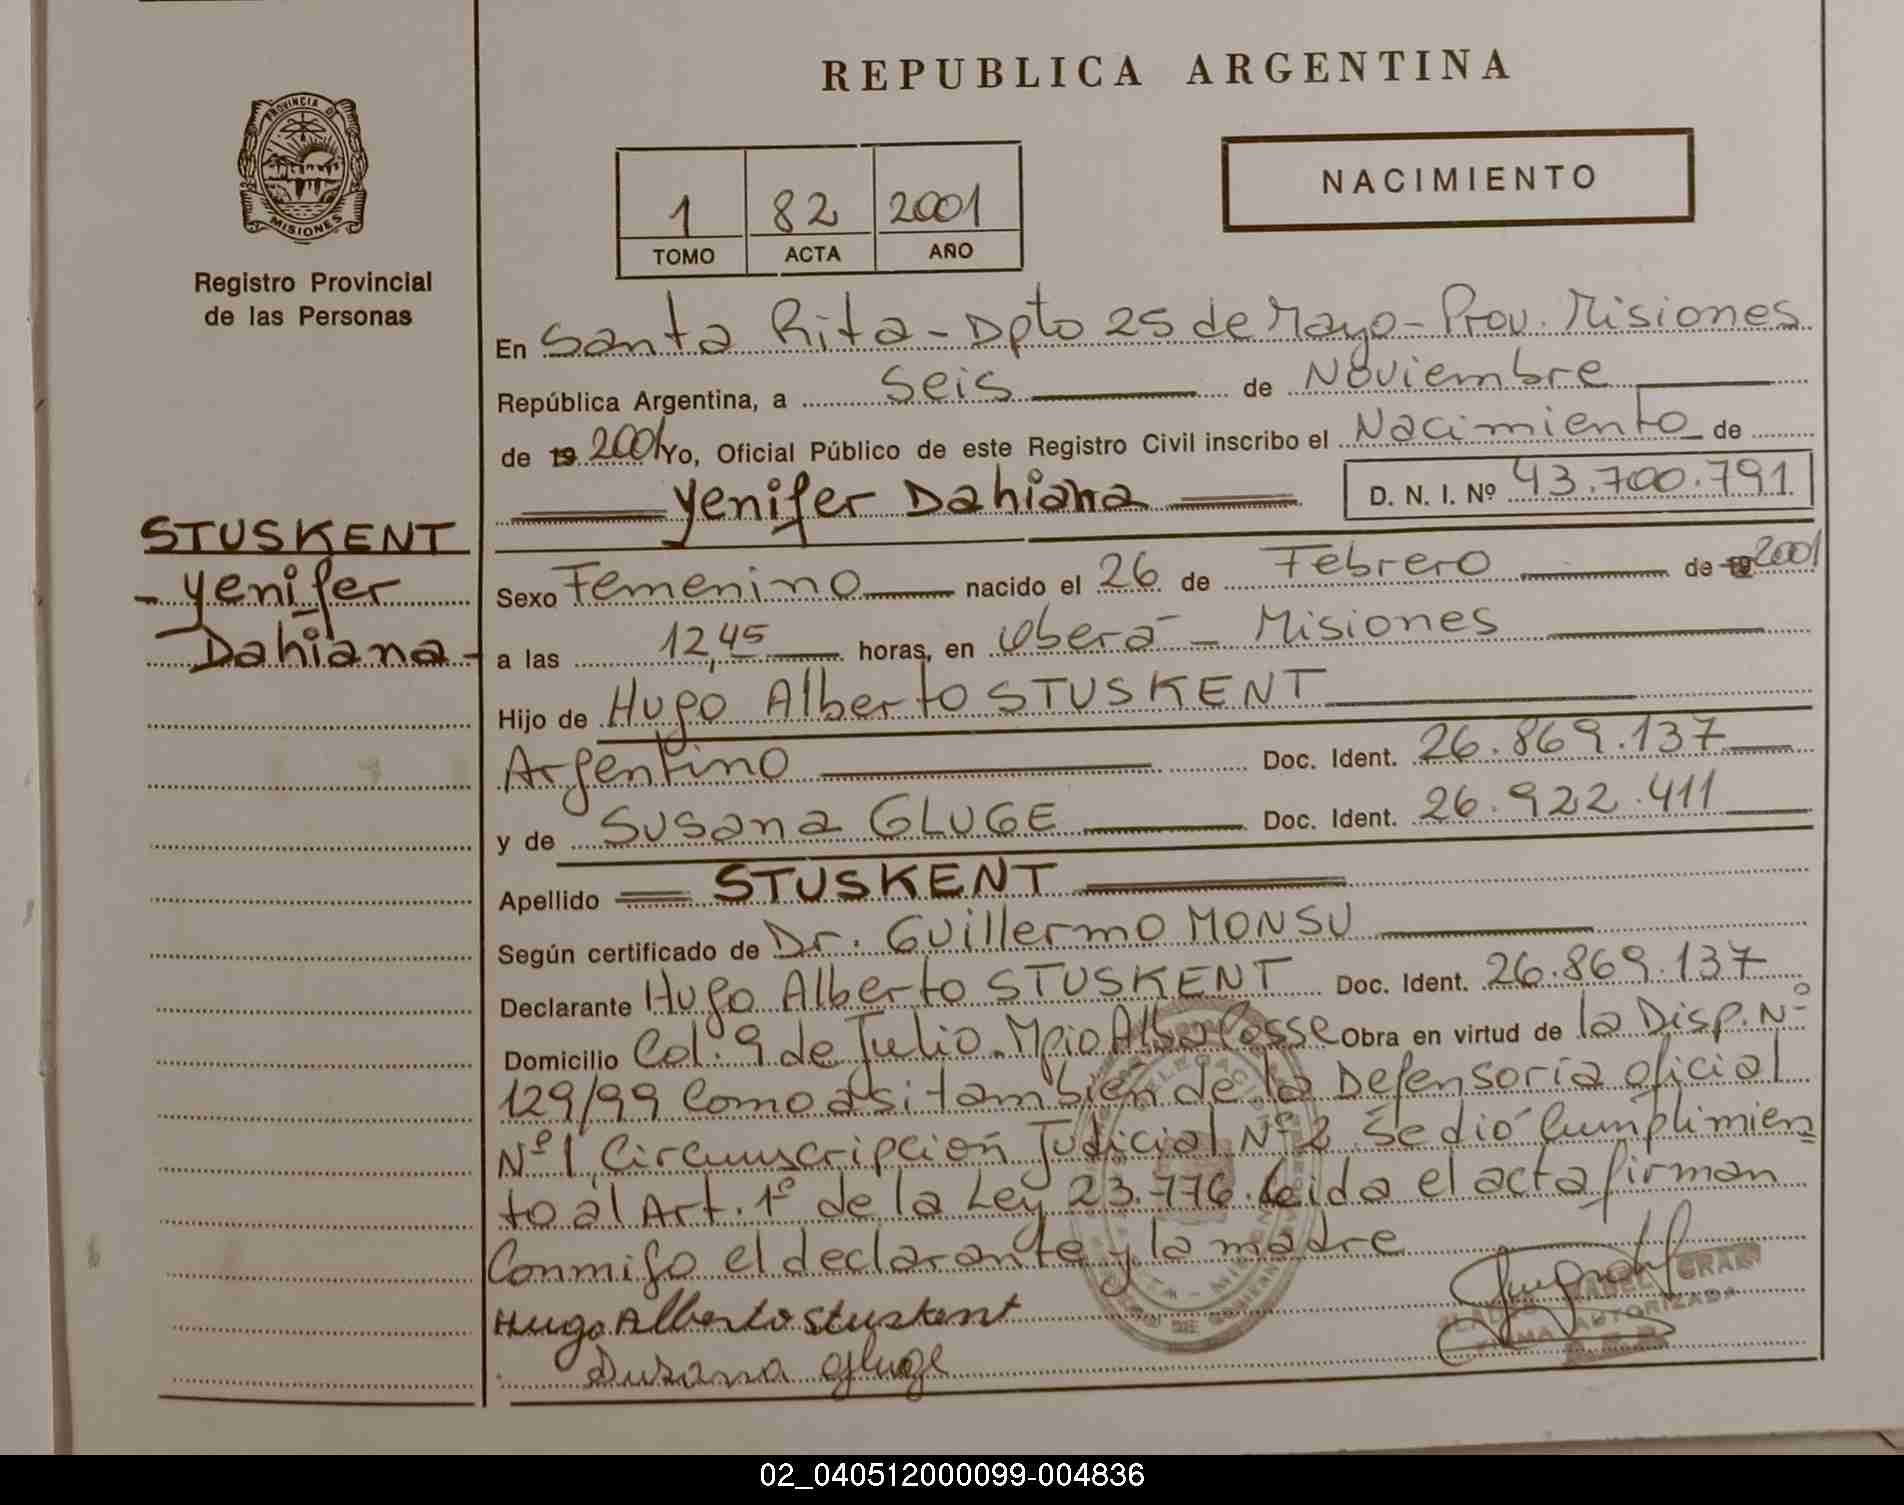 PROVINCIA DE
MISIONES
Registro Provincial
de las Personas
STUSKENT
- Yenifer
Dahiana -
REPUBLICA ARGENTINA
1 82 2001
TOMO ACTA AÑO
NACIMIENTO
En Santa Rita - Dpto 25 de Mayo - Prov. Misiones
República Argentina, a Seis de Noviembre
de 19 2001 Yo, Oficial Público de este Registro Civil inscribo el Nacimiento de
Yenifer Dahiana D. N. I. Nº 43.700.791
Sexo Femenino nacido el 26 de Febrero de 2001
a las 12,45 horas, en Oberá - Misiones
Hijo de Hugo Alberto STUSKENT
Argentino Doc. Ident. 26.869.137
y de Susana GLUGE Doc. Ident. 26.922.411
Apellido STUSKENT
Según certificado de Dr. Guillermo MONSU
Declarante Hugo Alberto STUSKENT Doc. Ident. 26.869.137
Domicilio Col. 9 de Julio. Mpio Alba Posse Obra en virtud de la Disp. Nº
129/99 Como asi también de la Defensoría oficial
Nº 1 Circunscripción Judicial Nº 2 Se dió Cumplimien
to al Art. 1º de la Ley 23.776. Leida el acta firman
Conmigo el declarante y la madre
Hugo Alberto Stuskent
Susana Gluge
FIRMA AUTORIZADA
02_040512000099-004836